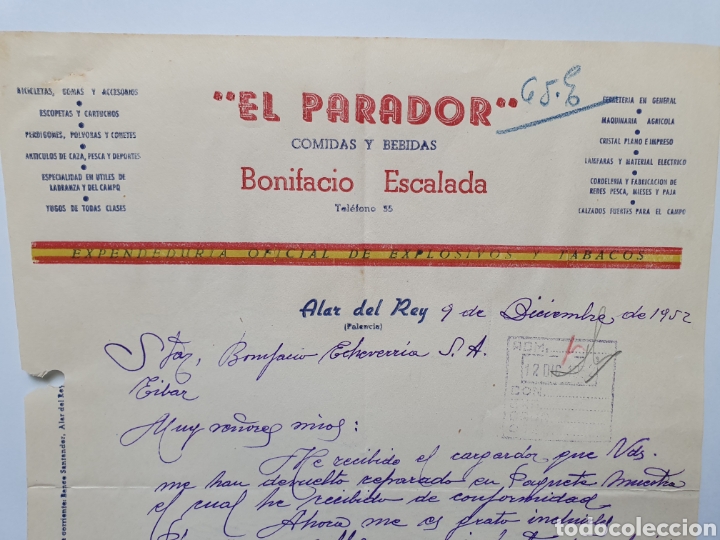 BICICLETAS, GOMAS Y ACCESORIOS
ESCOPETAS Y CARTUCHOS
PERDIGONES, POLVORAS Y COHETES
ARTICULOS DE CAZA, PESCA Y DEPORTES
ESPECIALIDAD EN UTILES DE
LABRANZA Y DEL CAMPO
YUGOS DE TODAS CLASES
"EL PARADOR"
COMIDAS Y BEBIDAS
Bonifacio Escalada
Teléfono 55
FERRETERIA EN GENERAL
MAQUINARIA AGRICOLA
CRISTAL PLANO E IMPRESO
LAMPARAS Y MATERIAL ELECTRICO
CORDELERIA Y FABRICACION DE
REDES PESCA, MIESES Y PAJA
CALZADOS FUERTES PARA EL CAMPO
EXPENDEDURIA OFICIAL DE EXPLOSIVOS Y TABACOS
Alar del Rey 9 de Diciembre de 1952
(Palencia)
Bonifacio Echeverria S. A.
Eibar
12 DIC
Muy señores mios:
He recibido el cargador que Vds.
me han devuelto reparado en Paquete Muestra
el cual he recibido de conformidad
Ahora me es grato incluirle
corriente: Banco Santander, Alar del Rey
todocoleccion